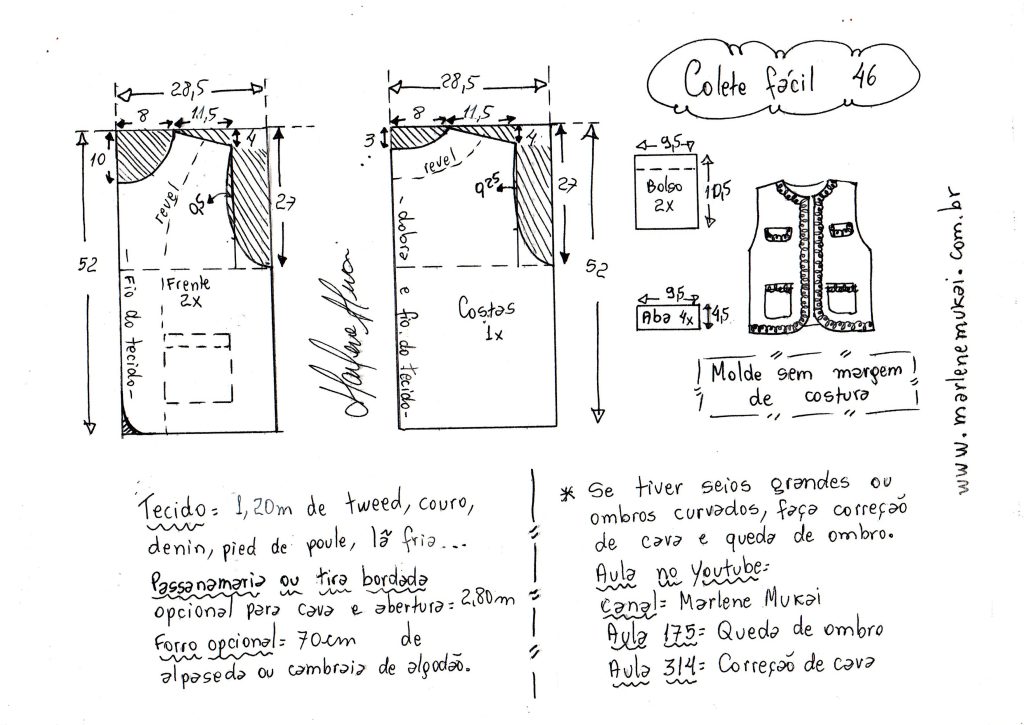 Colete fácil 46
28,5
8
11,5
10
4
revel
0,5
27
52
Frente
2x
Fio do tecido
28,5
8
11,5
3
4
revel
0,25
27
52
dobra e fio do tecido
Costas
1x
9,5
Bolso
2x
10,5
9,5
Aba 4x
4,5
Molde sem margem
de costura
www.marlenemukai.com.br
Tecido= 1,20m de tweed, couro,
denin, pied de poule, lã fria...
Passanamaria ou tira bordada
opcional para cava e abertura= 2,80m
Forro opcional= 70cm de
alpaseda ou cambraia de algodão.
* Se tiver seios grandes ou
ombros curvados, faça correção
de cava e queda de ombro.
Aula no Youtube=
canal= Marlene Mukai
Aula 175= Queda de ombro
Aula 314= Correção de cava